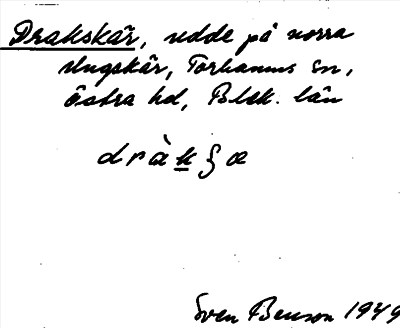 Drakskär, udde på norra
Ungskär, Torhamns sn,
Östra hd, Blek. län
dràk̲ʂæ
Sven Benson 1949